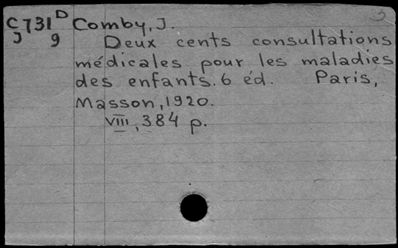 C731D Comby, J.
J 9 Deux cents consultations
médicales pour les maladies
des enfants. 6 éd. Paris,
Masson, 1920.
VIII, 384 p.